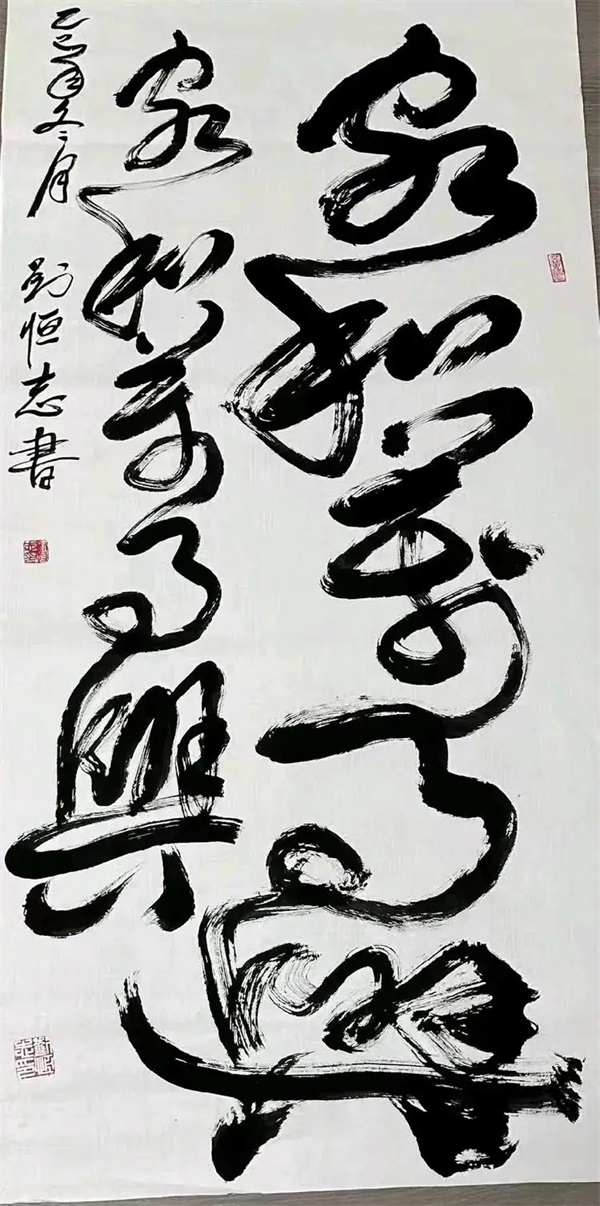 家和萬事興
家和萬事興
乙巳年冬月 劉恒志書